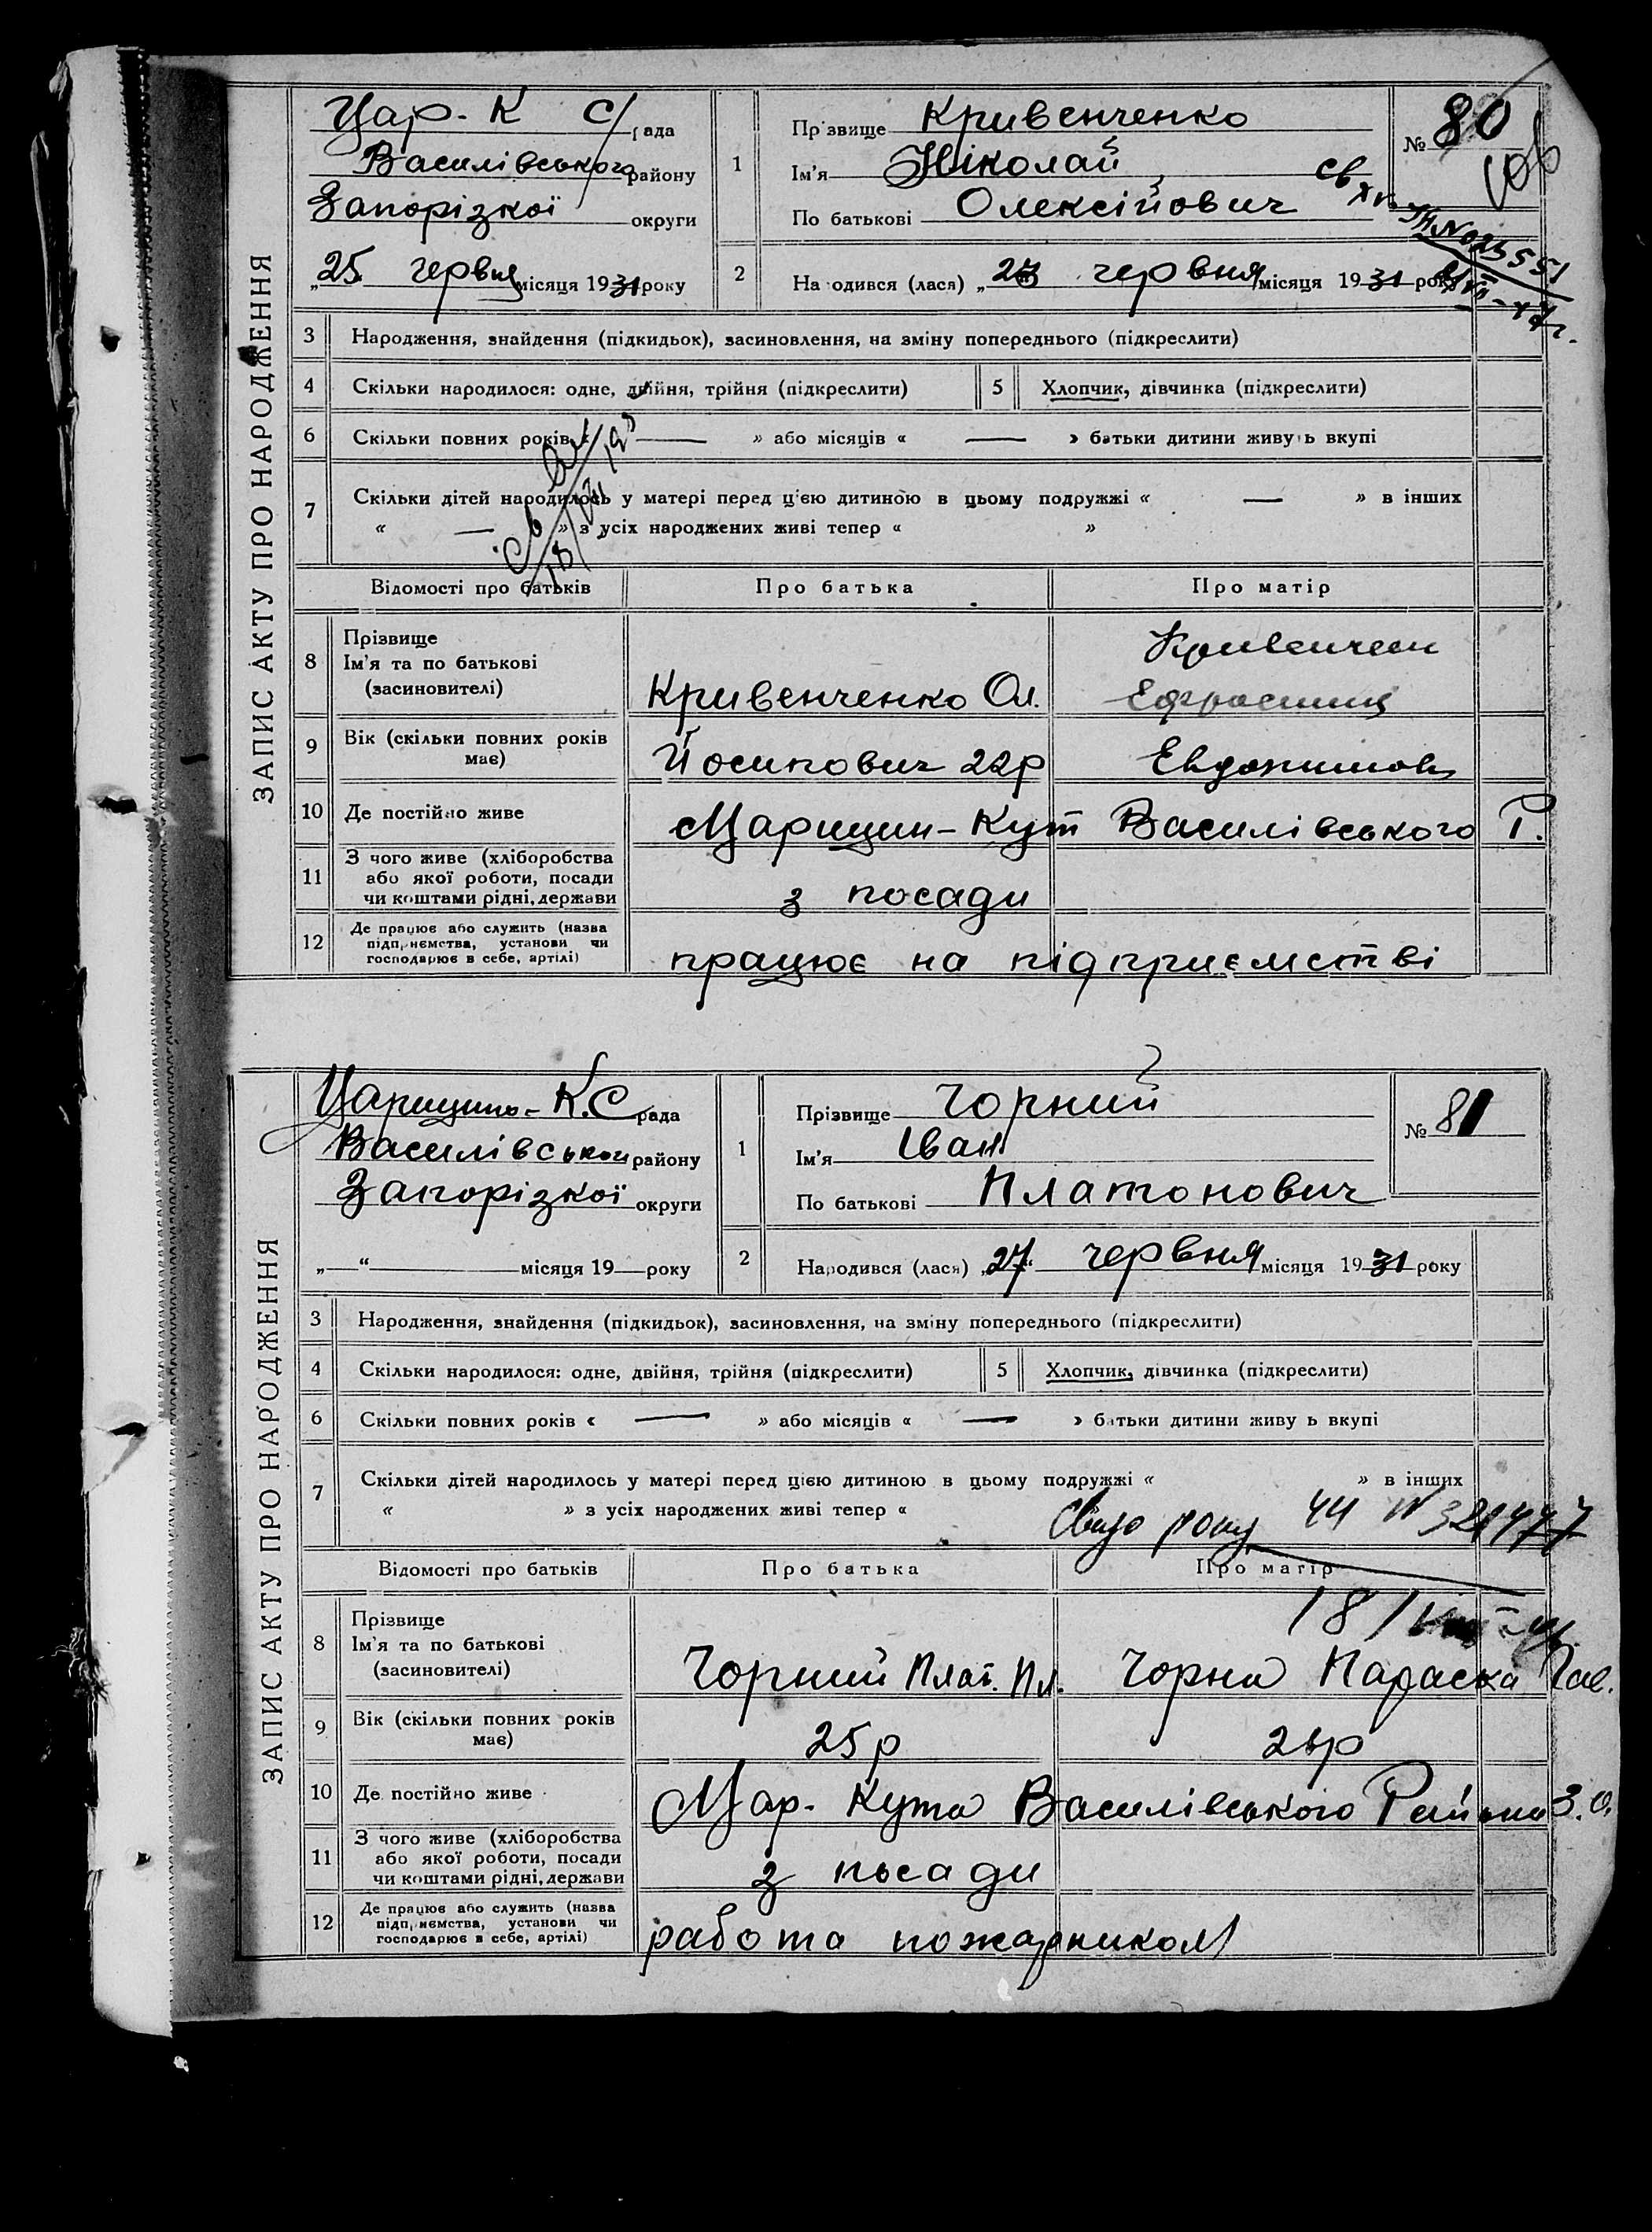 ЗАПИС АКТУ ПРО НАРОДЖЕННЯ
Цар. К с/рада
Василівського району
Запорізкої округи
„25 червня місяця 1931 року
1 Прізвище Кривенченко
Ім'я Ніколай
По батькові Олексійович
№ 80
2 На одився (лася) „ червня місяця 1931 року
3 Народження, знайдення (підкидьок), засиновлення, на зміну попереднього (підкреслити)
4 Скільки народилося: одне, двійня, трійня (підкреслити)
5 Хлопчик, дівчинка (підкреслити)
6 Скільки повних років « — » або місяців « — » батьки дитини живуть вкупі
7 Скільки дітей народилось у матері перед цією дитиною в цьому подружжі « — » в інших
« — » з усіх народжених живі тепер « »
Відомості про батьків Про батька Про матір
8 Прізвище
Ім'я та по батькові
(засиновителі)
Кривенченко Ол.
9 Вік (скільки повних років має)
Йосипович 22р
10 Де постійно живе
Царицин-Кут Василівського Р.
11 З чого живе (хліборобства
або якої роботи, посади
чи коштами рідні, держави
з посади
12 Де працює або служить (назва
підприємства, установи чи
господарює в себе, артілі)
працює на підприємстві
ЗАПИС АКТУ ПРО НАРОДЖЕННЯ
Царицино-К.С рада
Василівського району
Запорізкої округи
„—“ — місяця 19— року
1 Прізвище Чорний
Ім'я Іван
По батькові Платонович
№ 81
2 Народився (лася) „27“ червня місяця 1931 року
3 Народження, знайдення (підкидьок), засиновлення, на зміну попереднього (підкреслити)
4 Скільки народилося: одне, двійня, трійня (підкреслити)
5 Хлопчик, дівчинка (підкреслити)
6 Скільки повних років « — » або місяців « — » батьки дитини живу ь вкупі
7 Скільки дітей народилось у матері перед цією дитиною в цьому подружжі « » в інших
« » з усіх народжених живі тепер «
Відомості про батьків Про батька Про матір
8 Прізвище
Ім'я та по батькові
(засиновителі)
Чорний Плат. Пл. Чорна Параска
9 Вік (скільки повних років має)
25р
10 Де постійно живе
Цар. Кута Василівського Района З.О.
11 З чого живе (хліборобства
або якої роботи, посади
чи коштами рідні, держави
з посади
12 Де працює або служить (назва
підприємства, установи чи
господарює в себе, артілі)
работа пожарником